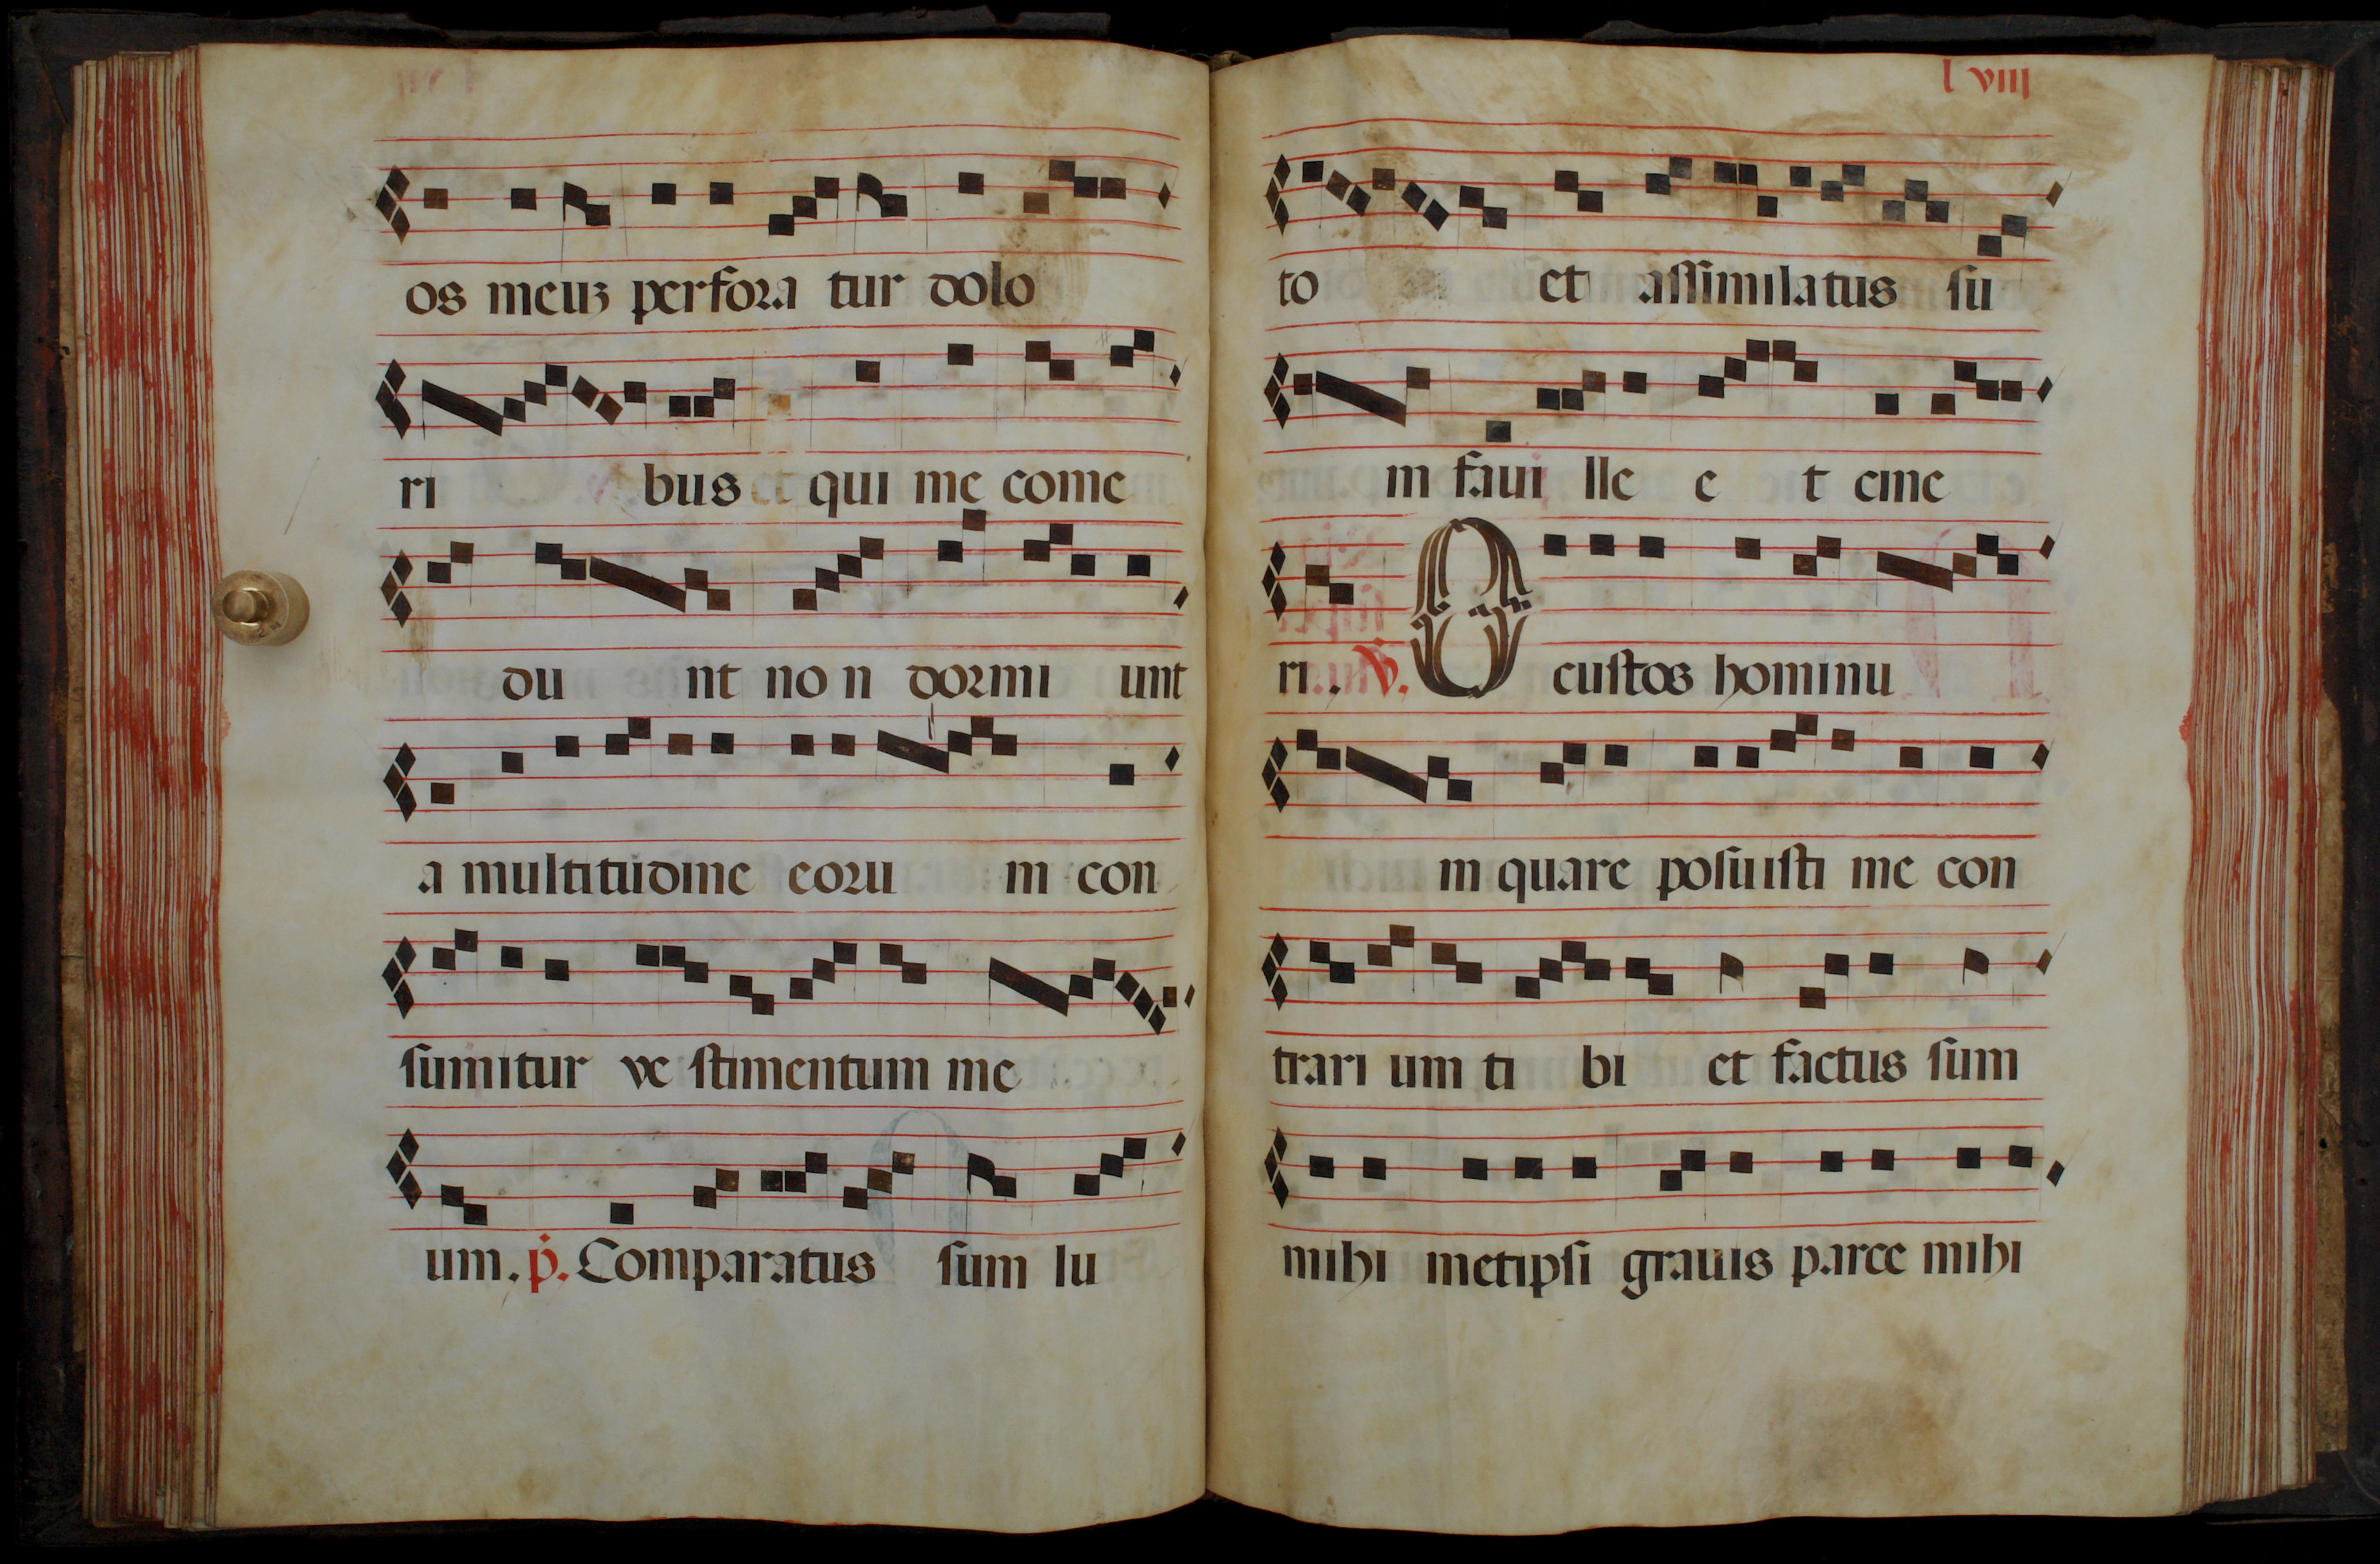 os meuꝫ perfora tur dolo
ri bus et qui me come
du nt no n dormi unt
a multitudine eoru m con
sumitur ve stimentum me
um. ṗ. Comparatus sum lu
lviij
to et assimilatus su
m faui lle e t cine
ri. ℣. O custos hominu
m quare posuisti me con
trari um ti bi et factus sum
mihi metipsi grauis parce mihi